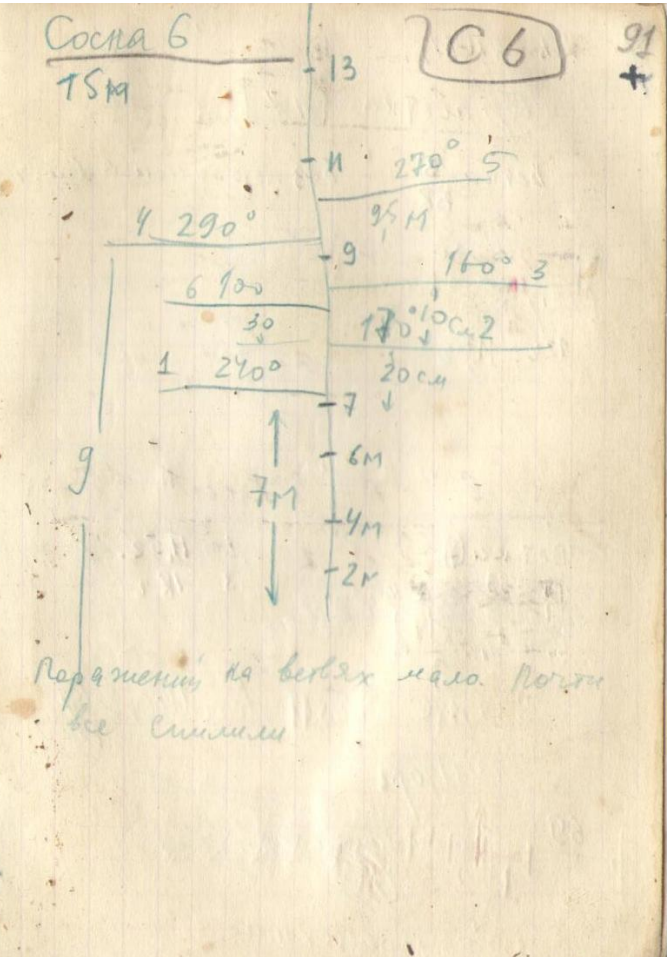 Сосна 6
С 6
91
+
15м
13
11
270° 5
95 м
4 290°
9
160° 3
6 100
10см 2
30
170°
1 240°
20см
7
6м
9
7м
4м
2м
Поражений на ветвях мало. Почти
все спилили